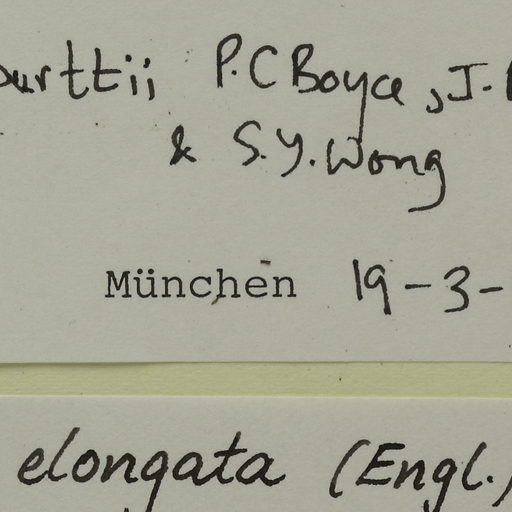 burttii P.C Boyce, J.
& S.Y. Wong
München 19-3-
elongata (Engl.)